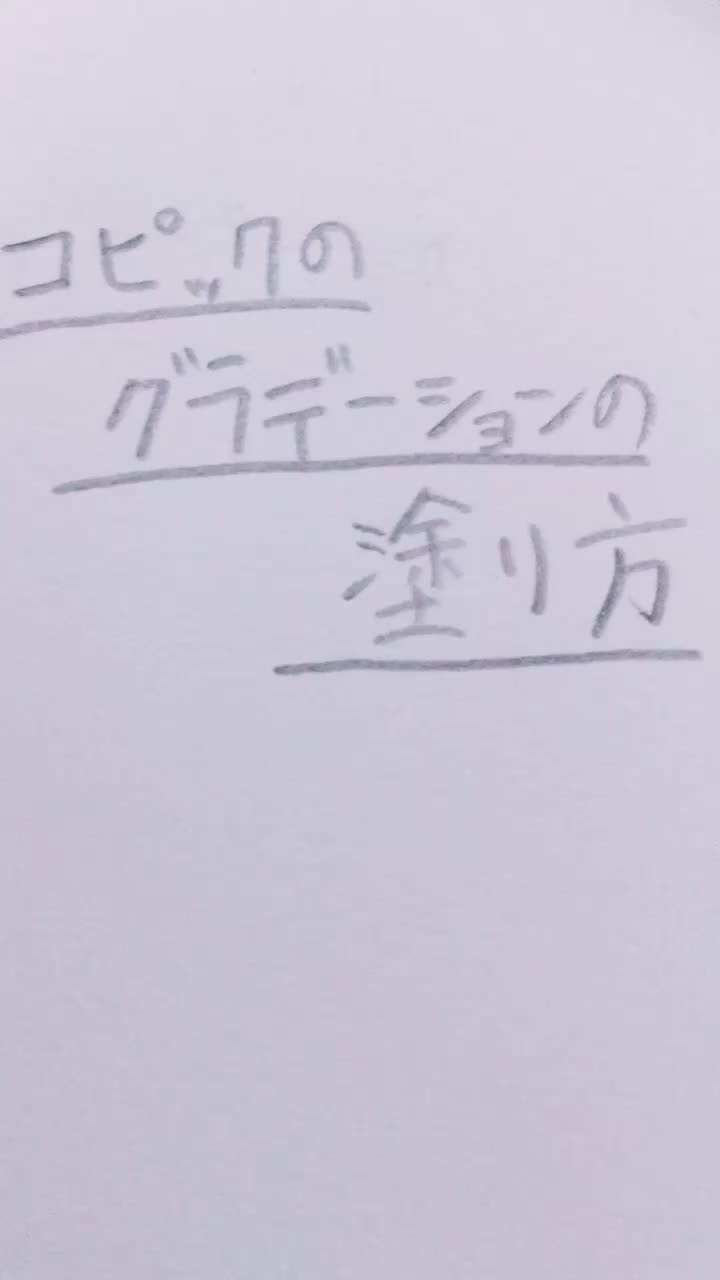 コピックの
グラデーションの
塗り方